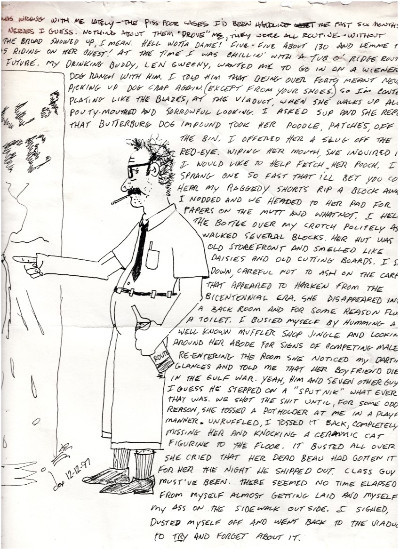 WAS WRONG? WITH ME LATELY - THE PISS POOR WAGES I'D BEEN THE PAST SIX MONTHS
NERVES I GUESS. NOTHING ABOUT THEM "DROVE" ME, THEY WERE ALL ROUTINE - WITHOUT
THE BROAD SHOWED UP, I MEAN. HELL WOTTA DAME! FIVE-FIVE ABOUT 130 AND LEMME T
IS RIDING ON HER CHEST! AT THE TIME I WAS CHILLIN' WITH A TUB O' RIDGE ROUT
FUTURE. MY DRINKING BUDDY, LEN GWEENY, WANTED ME TO GO IN ON A WIENER
DOG RANCH WITH HIM. I TOLD HIM THAT BEING OVER FORTY MEANT NEV
PICKING UP DOG CRAP AGAIN (EXCEPT FROM YOUR SHOES) SO I'M CONTE
PLATING LIKE THE BLAZES, AT THE VIADUCT, WHEN SHE WALKS UP ALL
POUTY-MOUTHED AND SORROWFUL LOOKING. I ASKED SUP AND SHE REP
THAT BUTTERBURG DOG IMPOUND TOOK HER POODLE, PATCHES, OFF
THE BIN. I OFFERED HER A SLUG OFF THE
RED-EYE. WIPING HER MOUTH SHE INQUIRED I
I WOULD LIKE TO HELP FETCH HER POOCH. I
SPRANG ONE SO FAST THAT I'LL BET YOU CO
HEAR MY RAGGEDY SHORTS RIP A BLOCK AWA
I NODDED AND WE HEADED TO HER PAD FOR
PAPERS ON THE MUTT AND WHATNOT. I HEL
THE BOTTLE OVER MY CROTCH POLITELY AS
WALKED SEVERAL BLOCKS. HER HUT WAS
OLD STOREFRONT AND SMELLED LIKE
DAISIES AND OLD CUTTING BOARDS. I S
DOWN, CAREFUL NOT TO ASH ON THE CARP
THAT APPEARED TO HARKEN FROM THE
BICENTENNIAL ERA. SHE DISAPPEARED IN
A BACK ROOM AND FOR SOME REASON FLU
A TOILET. I BUSIED MYSELF BY HUMMING A
WELL KNOWN MUFFLER SHOP JINGLE AND LOOKIN
AROUND HER ABODE FOR SIGNS OF COMPETING MALE
RE-ENTERING THE ROOM SHE NOTICED MY DARTIN
GLANCES AND TOLD ME THAT HER BOYFRIEND DIE
IN THE GULF WAR. YEAH, HIM AND SEVEN OTHER GUY
I GUESS HE STEPPED ON A "SPUTNIE" WHAT EVER
THAT WAS. WE SHOT THE SHIT UNTIL, FOR SOME ODD
REASON, SHE TOSSED A POTHOLDER AT ME IN A PLAYF
MANNER. UNRUFFLED, I TOSSED IT BACK, COMPLETELY
MISSING HER AND KNOCKING A CERAMIC CAT
FIGURINE TO THE FLOOR. IT BUSTED ALL OVER
SHE CRIED THAT HER DEAD BEAU HAD GOTTEN IT
FOR HER THE NIGHT HE SHIPPED OUT. CLASS GUY
MUST'VE BEEN. THERE SEEMED NO TIME ELAPSED
FROM MYSELF ALMOST GETTING LAID AND MYSELF
MY ASS ON THE SIDEWALK OUT SIDE. I SIGHED,
DUSTED MYSELF OFF AND WENT BACK TO THE VIADU
TO TRY AND FORGET ABOUT IT.
12-12-97